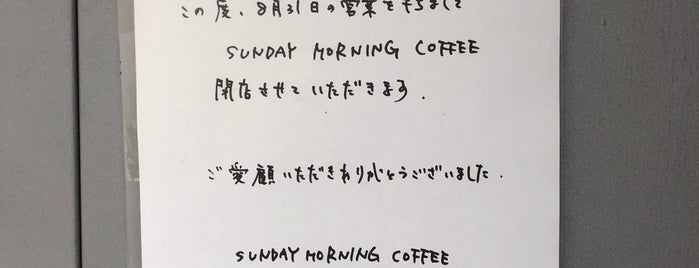 この度、8月31日の営業をもちまして
SUNDAY MORNING COFFEE
閉店させていただきます.
ご愛顧いただきありがとうございました.
SUNDAY MORNING COFFEE